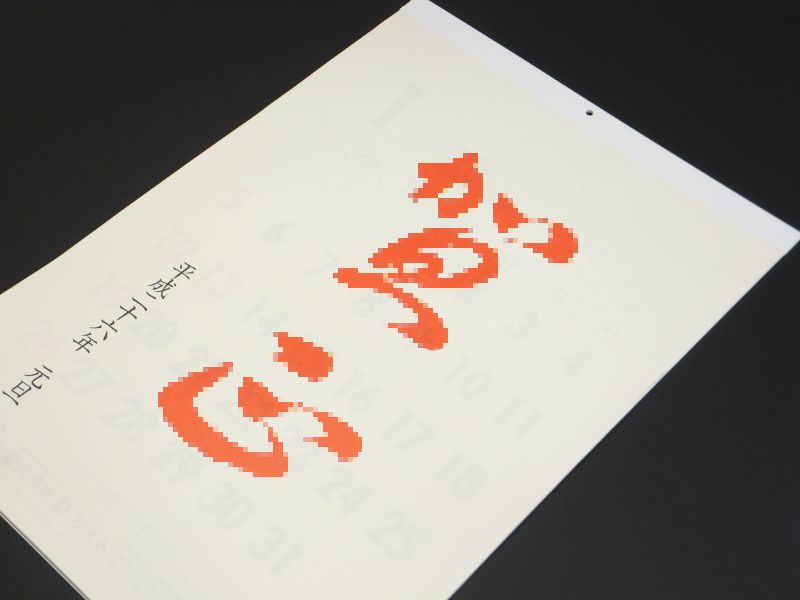 賀正
平成二十六年 元旦
1
3 4
5 6 7 8 10 11
13 14 16 17 18
19 20 24 25
26 27 28 29 30 31